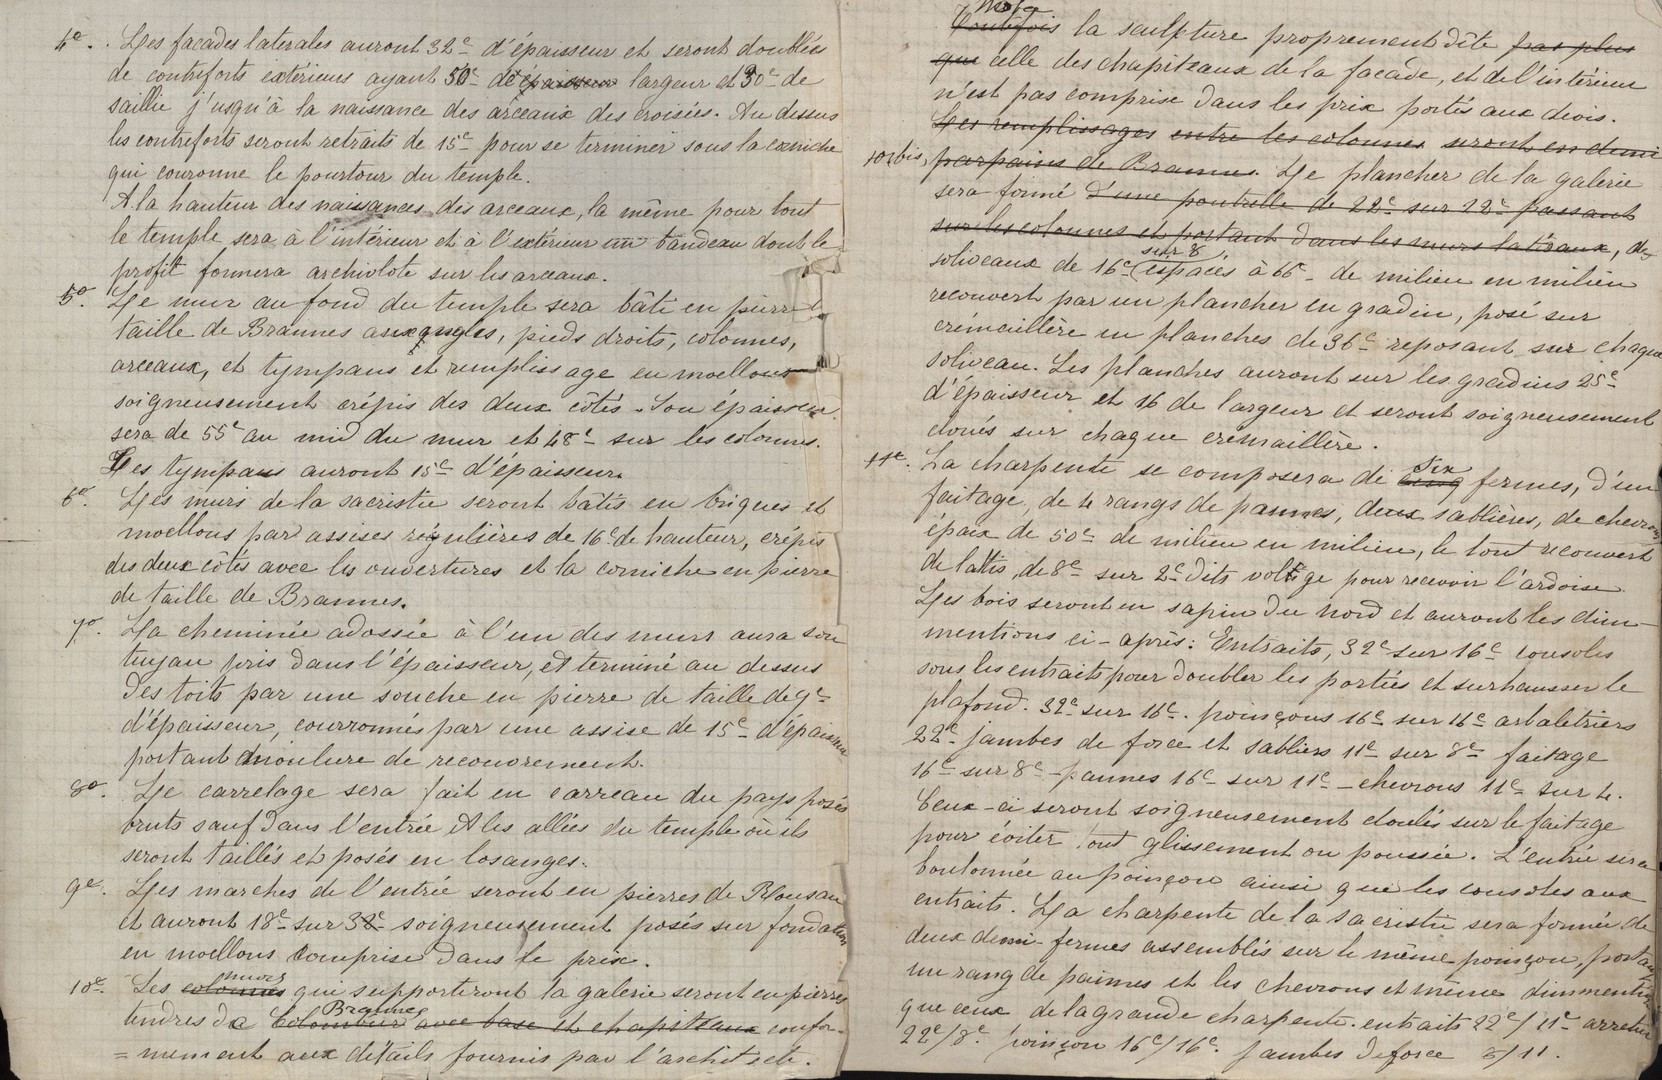 4º. Les facades laterales auront 32c d'épaisseur et seront doublées
de contreforts extérieurs ayant 50c de épaisseur largeur et 30c de
saillie jusqu'à la naissance des arceaux des croisées. Au dessus
les contreforts seront retraits de 15c pour se terminer sous la corniche
qui couronne le pourtour du temple.
A la hauteur des naissances des arceaux, la même pour tout
le temple sera à l'intérieur et à l'extérieur un bandeau dont le
profit formera archivolte sur les arceaux.
5º. Le mur au fond du temple sera bâti en pierre
taille de Brannes aux angles, pieds droits, colonnes,
arceaux, et tympans et remplissage en moellons
soigneusement crépis des deux côtés. Son épaisseur
sera de 55c au mid du mur et 48c sur les colonnes.
Les tympans auront 15c d'épaisseur.
6º. Les murs de la sacristie seront bâtis en briques et
moellons par assises régulières de 16c de hauteur, crépis
des deux côtés avec les ouvertures et la corniche en pierre
de taille de Brannes.
7º. La cheminée adossée à l'un des murs aura son
tuyau pris dans l'épaisseur, et terminé au dessus
des toits par une souche en pierre de taille de 9c
d'épaisseur, courronnés par une assise de 15c d'épaisseur
portant moulure de recouvrement.
8º. Le carrelage sera fait en carreau du pays posés
bruts sauf dans l'entrée & les allées du temple où ils
seront taillés et posés en losanges.
9º. Les marches de l'entrée seront en pierres de Rousau
et auront 18c sur 32c soigneusement posés sur fondation
en moellons comprise dans le prix.
murs
10º. Les colonnes qui supporteront la galerie seront en pierres
Brannes
tendres de Colombier avec base et chapiteaux confor-
=mement aux détails fournis par l'architecte.
Toutefois la sculpture proprement dite pas plus
que celle des chapiteaux de la facade, et de l'intérieur
n'est pas comprise dans les prix portés aux devis.
Les remplissages entre les colonnes seront en demi
10º bis, parpaings de Brannes. Le plancher de la galerie
sera formé d'une poutrelle de 22c sur 22c passant
sur les colonnes et portant dans les murs latéraux, de
sur 8
soliveaux de 16c espacés à 66c de milieu en milieu
recouvert par un plancher en gradin, posé sur
crémaillère en planches de 36c reposant sur chaque
soliveau. Les planches auront sur les gradins 25c
d'épaisseur et 16 de largeur et seront soigneusement
cloués sur chaque crémaillère.
six
11º. La charpente se composera de cinq fermes, d'un
faitage, de 4 rangs de pannes, deux sablières, de chevrons
épaix de 50c de milieu en milieu, le tout recouvert
de lattis, de 8c sur 2c dits voltige pour recevoir l'ardoise
Les bois seront en sapin du nord et auront les dim-
mentions ci-après: Entraits, 32c sur 16c consoles
sous les entraits pour doubler les portées et surhausser le
plafond. 32c sur 16c. poinçons 16c sur 16c arbaletriers
22c jambes de force et sabliers 11c sur 8c faitage
16c sur 8c - pannes 16c sur 11c - chevrons 11c sur 4.
Ceux-ci seront soigneusement cloués sur le faitage
pour éviter tout glissement ou poussée. L'entrée sera
boulonnée au poinçon ainsi que les consoles aux
entraits. La charpente de la sacristie sera formée de
deux demi-fermes assemblés sur le même poinçon, portant
un rang de pannes et les chevrons et même dimmention
que ceux de la grande charpente. entraits 22c/11c
22c/8c. poinçon 16c/16c. Jambes de force 8/11.